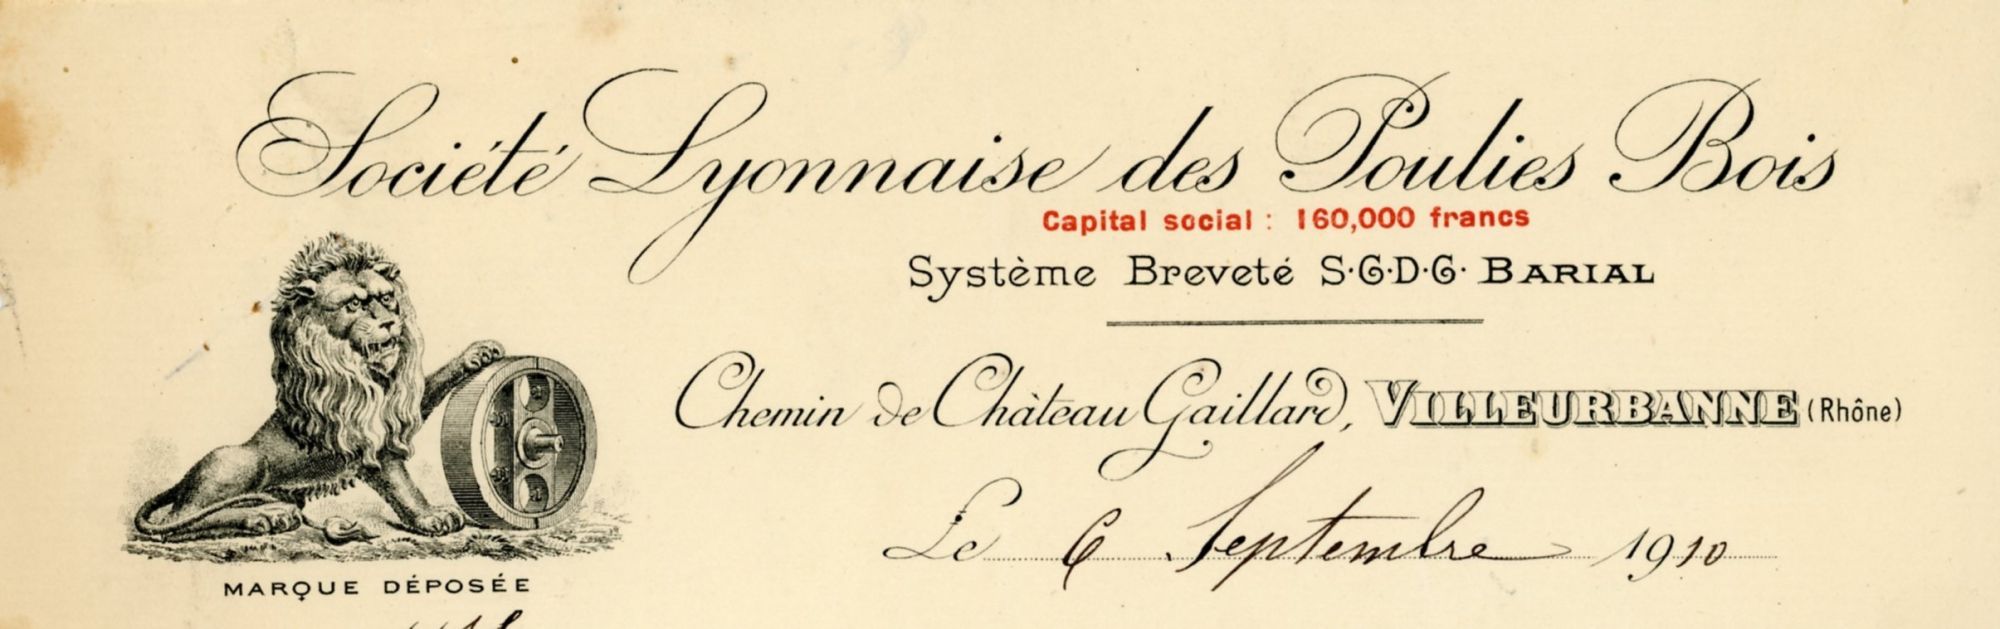 Société Lyonnaise des Poulies Bois
Capital social : 160,000 francs
Système Breveté S.G.D.G. BARIAL
Chemin de Château Gaillard, VILLEURBANNE (Rhône)
Le 6 Septembre 1910
MARQUE DÉPOSÉE